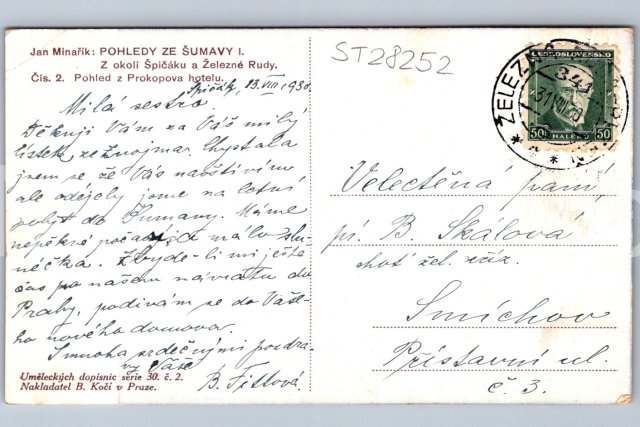 Jan Minařík: POHLEDY ZE ŠUMAVY I.
Z okolí Špičáku a Železné Rudy.
Čís. 2. Pohled z Prokopova hotelu.
ST28252
ČESKOSLOVENSKO
50 HALÉŘŮ 50
ŽELEZNÁ
Špičák, 13. VIII. 1930.
Milá sestro
Děkuji Vám za Váš milý
lístek, ze Znojma. Chystala
jsem se že Vás navštívím
ale odejely jsme na letní
pobyt do Šumavy. Máme
nepěkné počasí, málo slu-
néčka. Zbyde-li mi ještě
čas po našem návratu do
Prahy, podívám se do Vaše-
ho nového domova.
S mnoha srdečnými pozdra-
vy Vaše
B. Fitlová.
Velectěná paní,
pí. B. Skálová
choť žel.
Smíchov
Přístavní ul.
č. 3.
Uměleckých dopisnic série 30. č. 2.
Nakladatel B. Kočí v Praze.